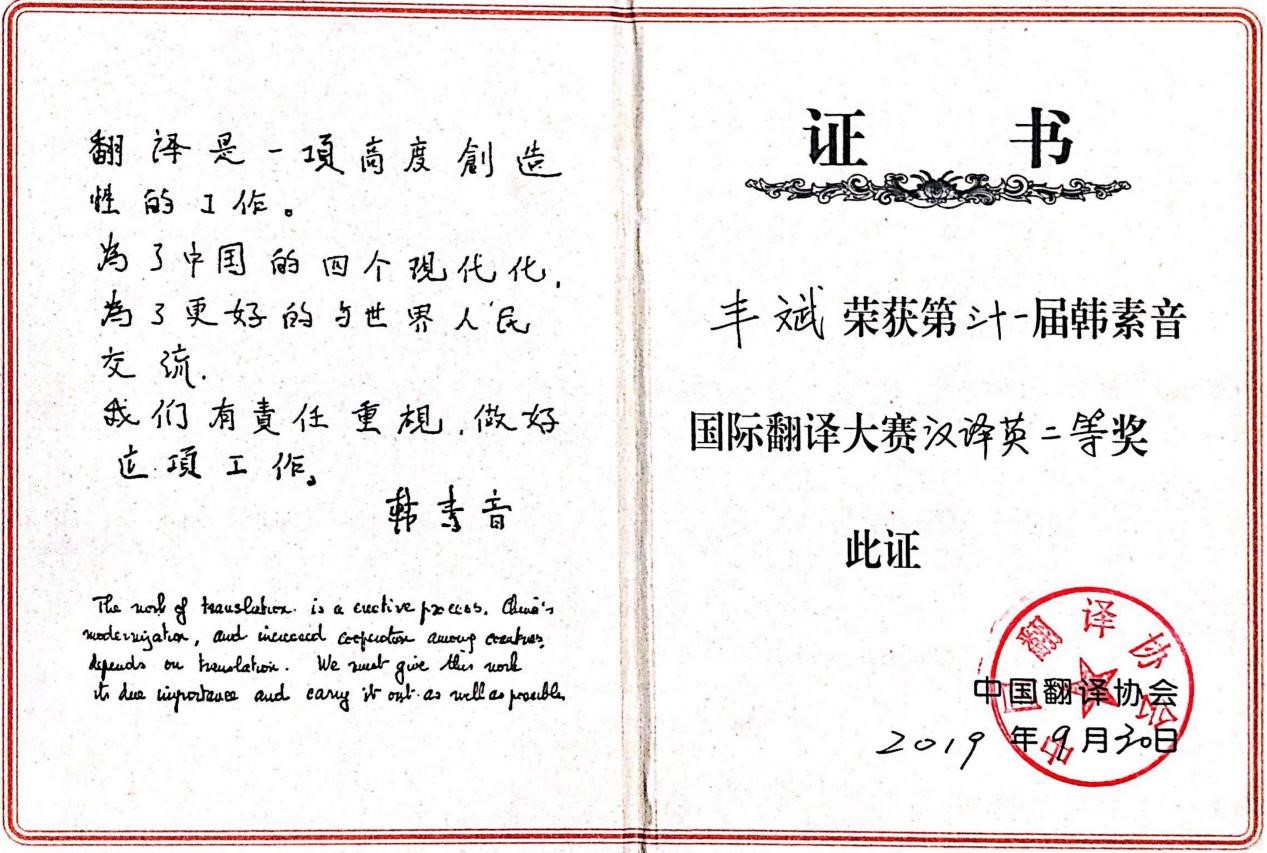 翻译是一項高度創造
性的工作。
為了中国的四个現代化,
為了更好的与世界人民
交流.
我们有責任重視,做好
这項工作。
韩素音
The work of translation is a creative process. China's
modernization, and increased cooperation among countries,
depends on translation. We must give this work
its due importance and carry it out as well as possible.
证书
丰斌荣获第卅一届韩素音
国际翻译大赛汉译英二等奖
此证
中国翻译协会
中国翻译协会
2019年9月30日